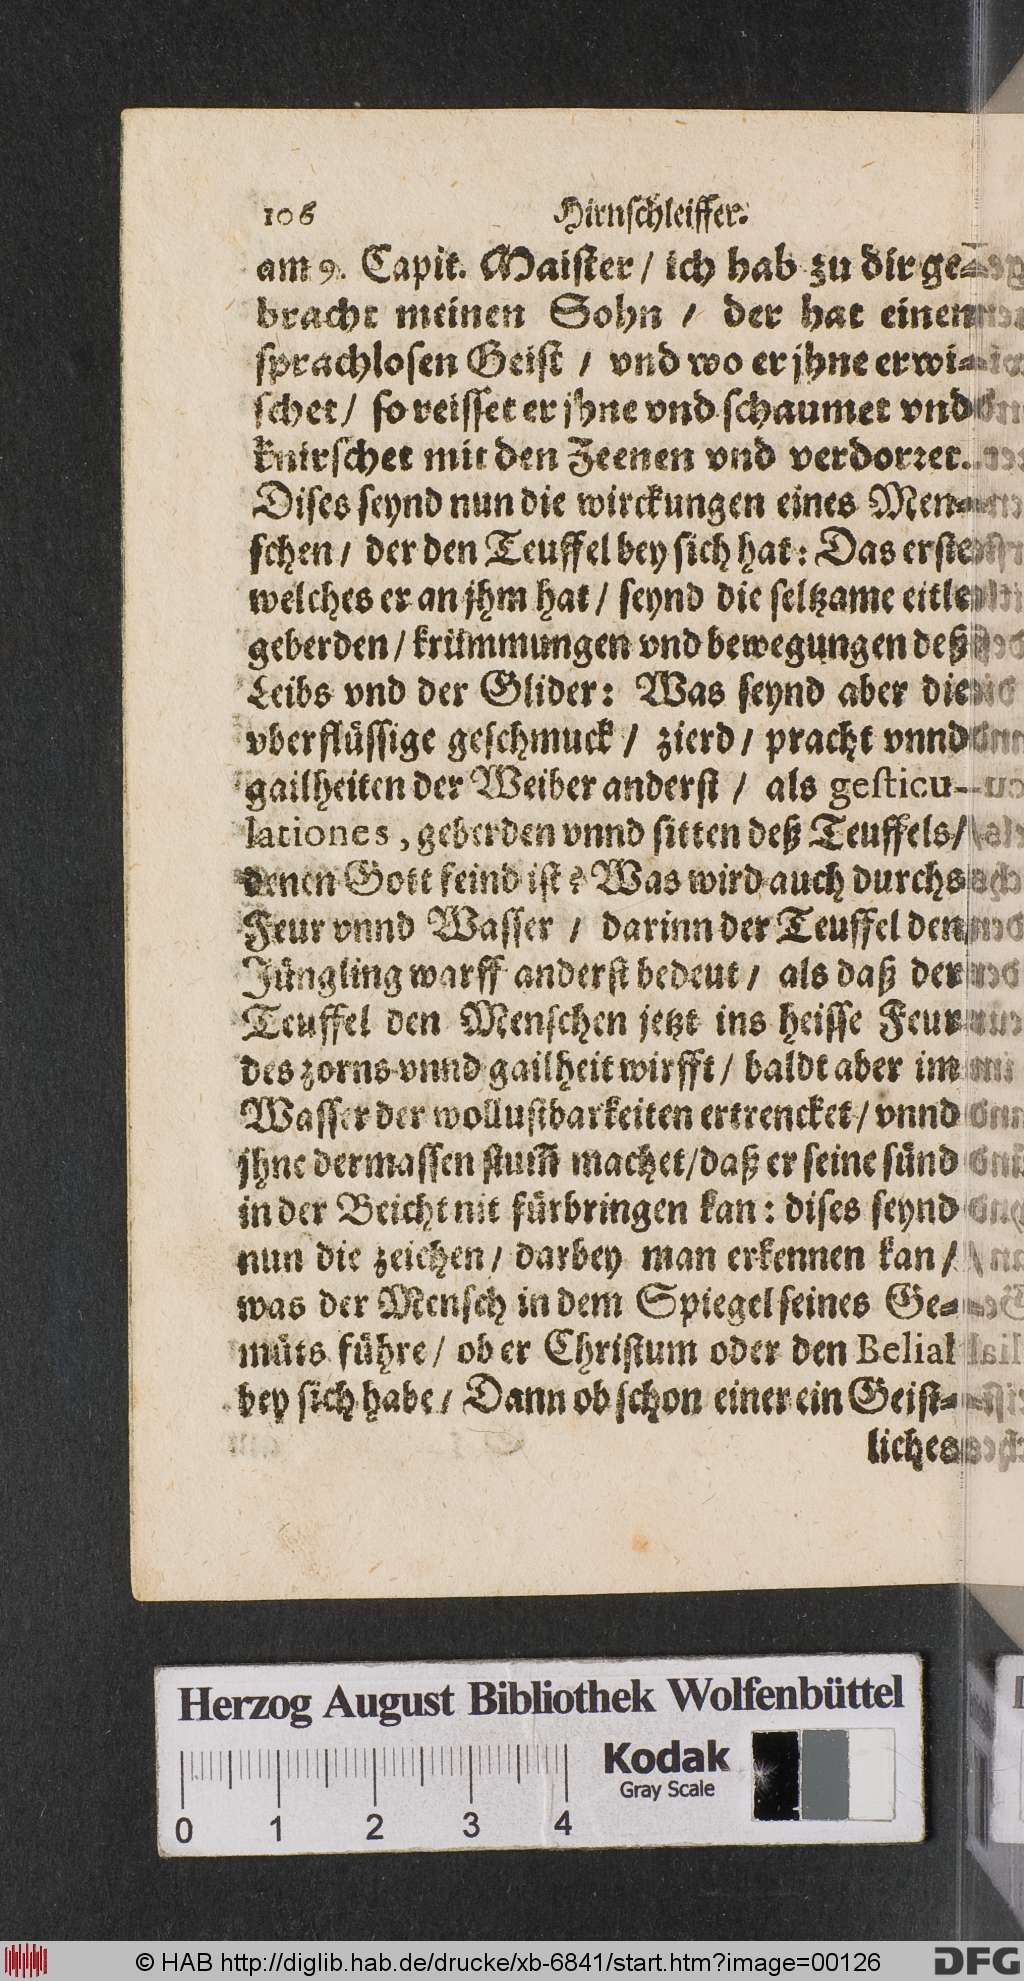 106 Hirnschleiffer.
am 9. Capit. Maister / ich hab zu dir ge-
bracht meinen Sohn / der hat einen
sprachlosen Geist / vnd wo er jhne erwi-
schet / so reisset er jhne vnd schaumet vnd
knirschet mit den Zeenen vnd verdorret.
Dises seynd nun die wirckungen eines Men-
schen / der den Teuffel bey sich hat: Das erste
welches er an jhm hat / seynd die seltzame eitle
geberden / krümmungen vnd bewegungen deß
Leibs vnd der Glider: Was seynd aber die
vberflüssige geschmuck / zierd / pracht vnnd
gailheiten der Weiber anderst / als gesticu-
lationes, geberden vnnd sitten deß Teuffels /
denen Gott feind ist? Was wird auch durchs
Feur vnnd Wasser / darinn der Teuffel den
Jüngling warff anderst bedeut / als daß der
Teuffel den Menschen jetzt ins heisse Feur
des zorns vnnd gailheit wirfft / baldt aber im
Wasser der wollustbarkeiten ertrencket / vnnd
jhne dermassen stum̃ machet / daß er seine sünd
in der Beicht nit fürbringen kan: dises seynd
nun die zeichen / darbey man erkennen kan /
was der Mensch in dem Spiegel seines Ge-
müts führe / ob er Christum oder den Belial
bey sich habe / Dann ob schon einer ein Geist-
liches
Herzog August Bibliothek Wolfenbüttel
Kodak
Gray Scale
0 1 2 3 4
© HAB http://diglib.hab.de/drucke/xb-6841/start.htm?image=00126
DFG